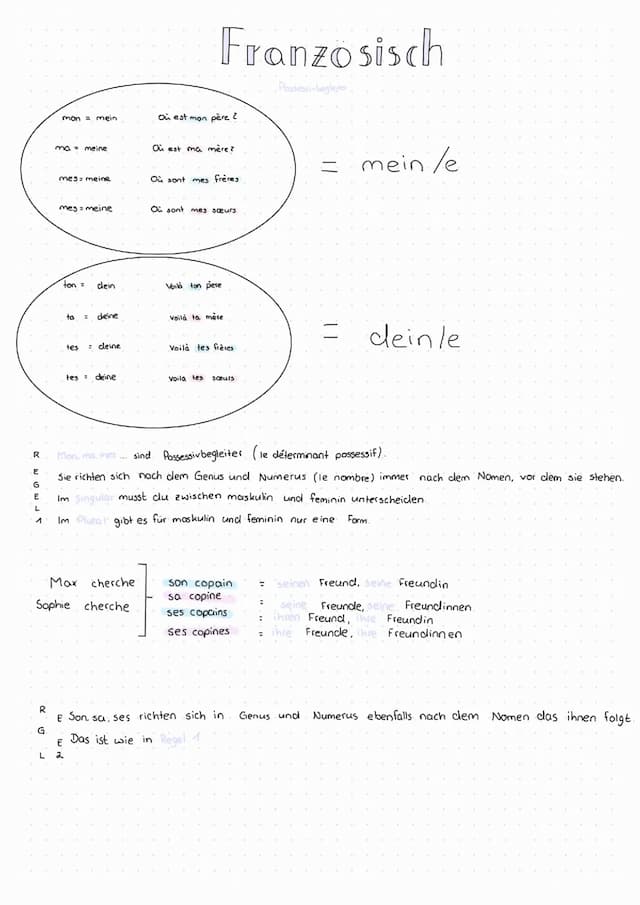 Französisch
Possessivbegleiter
mon = mein Où est mon père?
ma = meine Où est ma mère?
mes = meine Où sont mes frères
mes = meine Où sont mes sœurs
= mein/e
ton = dein Voilà ton père
ta = deine Voilà ta mère
tes = deine Voilà tes frères
tes = deine Voilà tes sœurs
= dein/e
REGEL 1
Mon, ma, mes ... sind Possessivbegleiter (le déterminant possessif).
Sie richten sich nach dem Genus und Numerus (le nombre) immer nach dem Nomen, vor dem sie stehen.
Im Singular musst du zwischen maskulin und feminin unterscheiden.
Im Plural gibt es für maskulin und feminin nur eine Form.
Max cherche
Sophie cherche
son copain = seinen Freund, seine Freundin
sa copine : seine Freunde, seine Freundinnen
ses copains : ihren Freund, ihre Freundin
ses copines = ihre Freunde, ihre Freundinnen
REGEL 2
Son, sa, ses richten sich in Genus und Numerus ebenfalls nach dem Nomen das ihnen folgt.
Das ist wie in Regel 1